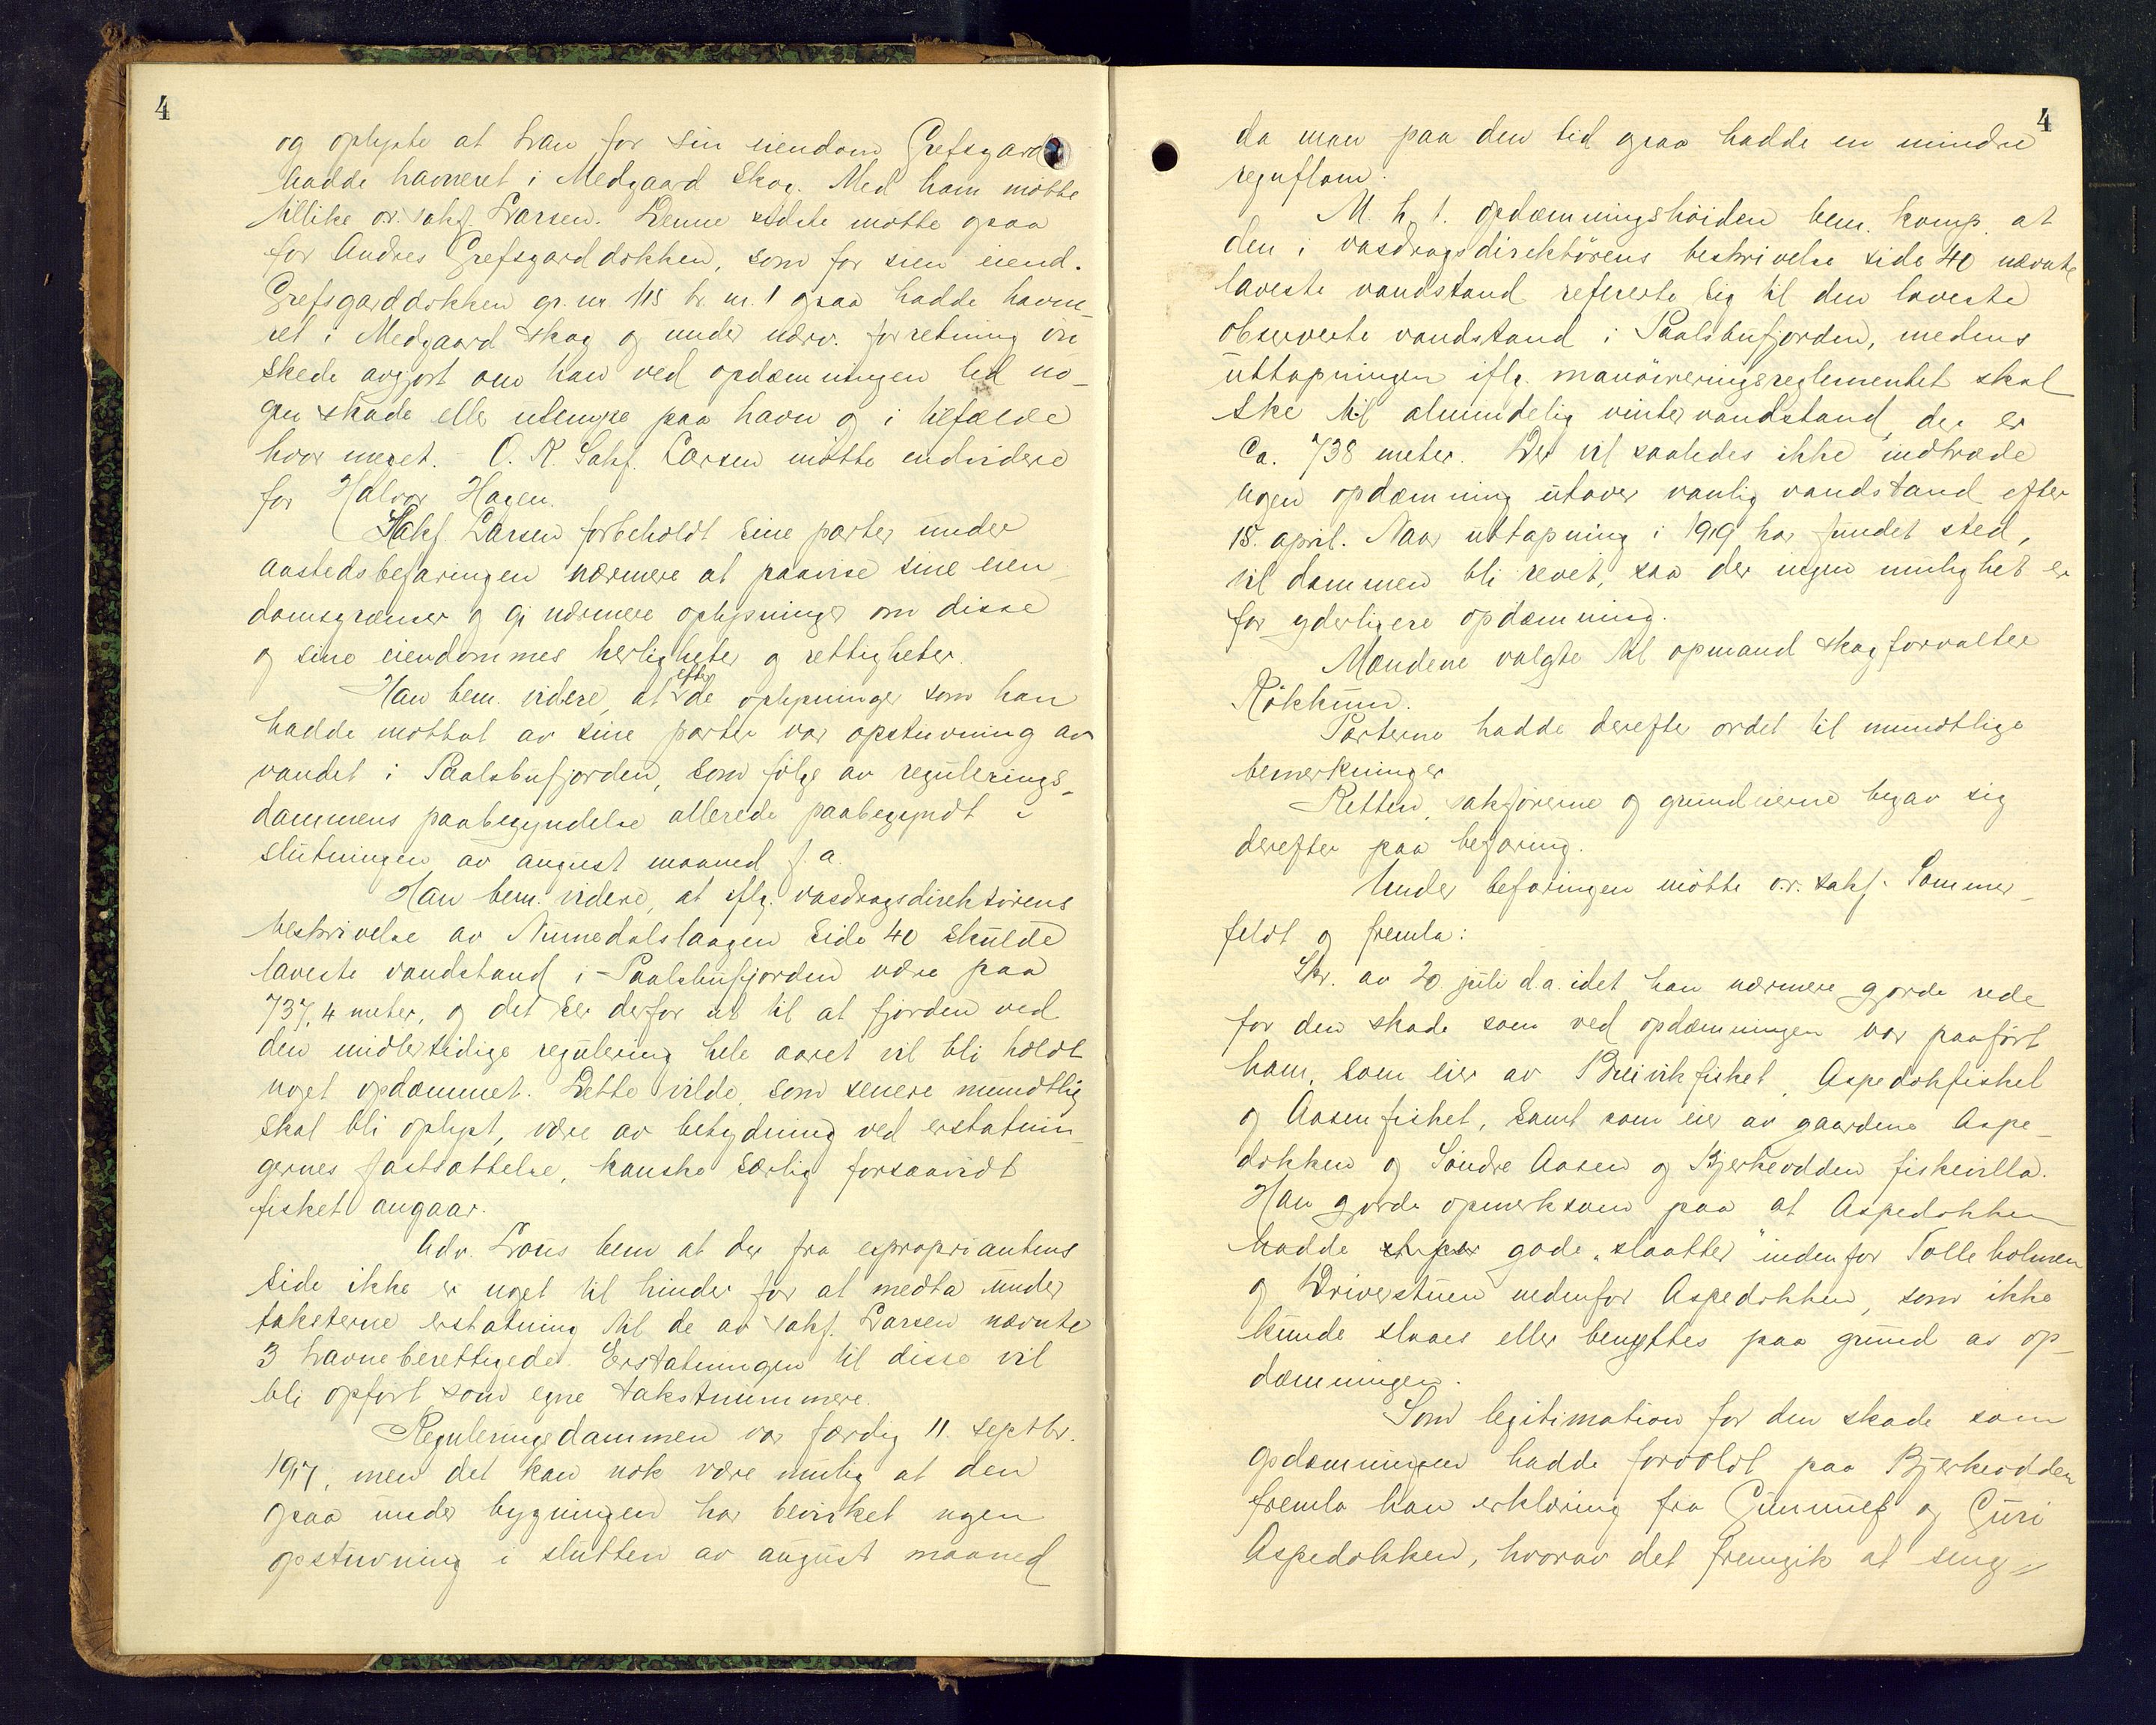 4
og oplyste at han for sin eiendom Grefsgard
hadde havneret i Medgaard Skog. Med ham møtte
tillike o.r. sakf. Larsen. Denne sidste møtte ogsaa
for Andres Grefsgarddokken, som for sien eiend.
Grefsgarddokken gr. nr. 115 br. nr. 1 ogsaa hadde havne-
ret i Medgaard skog og under nærv. forretning øn
skede avgjort om han ved opdæmningen led no-
gen skade eller ulempe paa havn og i tilfælde
hvor meget. - O. R. Sakf. Larsen møtte endvidere
for Halvor Hagen.
Sakf. Larsen forbeholdt sine parter under
aastedsbefaringen nærmere at paavise sine eien-
domsgrænser og gi nærmere oplysninger om disse
og sine eiendommes herligheter og rettigheter.
Han bem. videre, at efter de oplysninger som han
hadde mottat av sine parter var opstuvning av
vandet i Paalsbufjorden, som følge av regulerings-
dammens paabegyndelse allerede paabegyndt i
slutningen av august maaned f. a.
Han bem. videre, at iflg. vasdragsdirektørens
beskrivelse av Numedalslaagen side 40 skulde
laveste vandstand i Paalsbufjorden være paa
737,4 meter, og det ser derfor ut til at fjorden ved
den midlertidige regulering hele aaret vil bli holdt
noget opdæmmet. Dette vilde, som senere mundtlig
skal bli oplyst, være av betydning ved erstatnin-
gernes fastsættelse, kanske særlig forsaavidt
fisket angaar.
Adv. Lous bem at der fra expropriantens
side ikke er noget til hinder for at medta under
taksterne erstatning til de av sakf. Larsen nævnte
3 havneberettigede. Erstatningen til disse vil
bli opført som egne takstnummere.
Reguleringsdammen var færdig 11. septbr.
1917, men det kan nok være mulig at den
ogsaa under bygningen har bevirket nogen
opstuvning i slutten av august maaned
4
da man paa den tid ogsaa hadde en mindre
regnflom.
M. h. t. opdæmningshøiden bem. komp. at
den i vasdragsdirektørens beskrivelse side 40 nævnte
laveste vandstand refererte sig til den laveste
observerte vandstand i Paalsbufjorden, medens
uttapningen iflg. manøvreringsreglementet skal
ske til almindelig vintervandstand, der er
ca. 738 meter. Der vil saaledes ikke indtræde
nogen opdæmning utover vanlig vandstand efter
15. april. Naar uttapning i 1919 har fundet sted,
vil dammen bli revet, saa der ingen mulighet er
for yderligere opdæmning.
Mændene valgte til opmand skogforvalter
Røkkum.
Parterne hadde derefter ordet til mundtlige
bemerkninger
Retten, sakførerne og grundeierne begav sig
derefter paa befaring.
Under befaringen møtte o.r. sakf. Sommer-
feldt og fremla:
Skr. av 20 juli d.a. idet han nærmere gjorde rede
for den skade som ved opdæmningen var paaført
ham, som eier av Breivikfisket, Aspedokfisket
og Aasenfisket, samt som eier av gaardene Aspe-
dokken og Søndre Aasen og Bjerkeodden fiskevilla.
Han gjorde opmerksom paa at Aspedokken
hadde gode "slaatter" indenfor Tolleholmen
og Driverstuen nedenfor Aspedokken, som ikke
kunde slaaes eller benyttes paa grund av op-
dæmningen.
Som legitimation for den skade som
opdæmningen hadde forvoldt paa Bjerkeodden
fremla han erklæring fra Gunnulf og Guri
Aspedokken, hvorav det fremgik at seng=